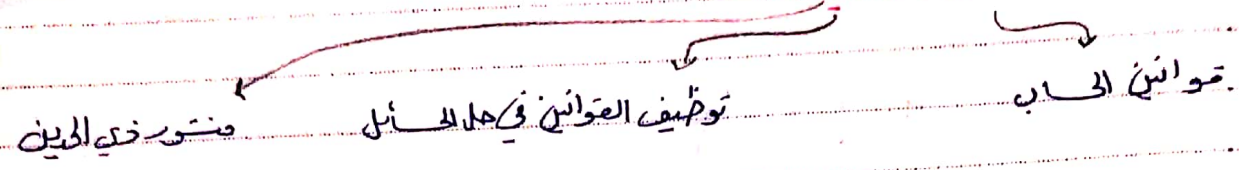 قوانين الحساب
توظيف القوانين في حل المسائل
منشور ذي الحدين